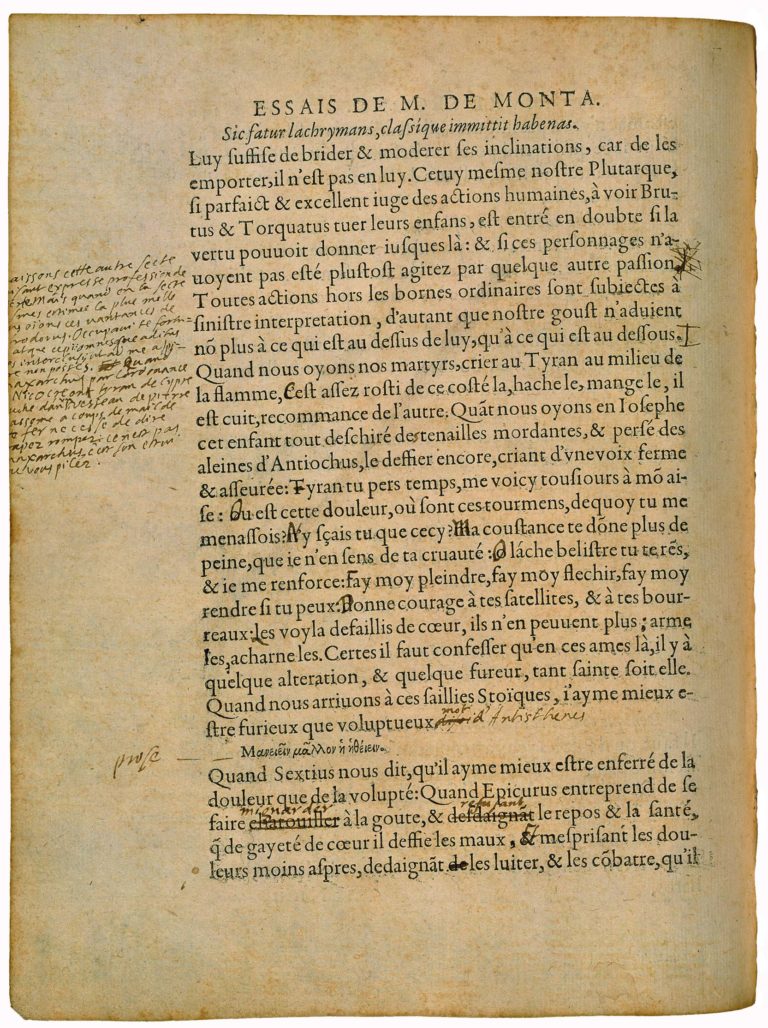 ESSAIS DE M. DE MONTA.
Sic fatur lachrymans, classique immittit habenas.
Luy suffise de brider & moderer ses inclinations, car de les
emporter, il n'est pas en luy. Cetuy mesme nostre Plutarque,
si parfaict & excellent iuge des actions humaines, à voir Bru-
tus & Torquatus tuer leurs enfans, est entré en doubte si la
vertu pouuoit donner iusques là: & si ces personnages n'a-
uoyent pas esté plustost agitez par quelque autre passion
Toutes actions hors les bornes ordinaires sont subiectes à
sinistre interpretation, d'autant que nostre goust n'aduient
nõ plus à ce qui est au dessus de luy, qu'à ce qui est au dessous.
aissons cette autre secte
faisant expresse profession de
Mais quand en la secte
estimee la plus molle
oions ces vantances de
Occupaui te fortu-
Quand
par l'ordonnance
Nicocreont tyran de Cypre
de pierre
assomé a coups de mail de
fer ne cesse de dire
rompez ce n'est pas
Quand nous oyons nos martyrs, crier au Tyran au milieu de
la flamme, C'est assez rosti de ce costé la, hache le, mange le, il
est cuit, recommance de l'autre. Quãt nous oyons en Iosephe
cet enfant tout deschiré de tenailles mordantes, & persé des
aleines d'Antiochus, le deffier encore, criant d'vne voix ferme
& asseurée: Tyran tu pers temps, me voicy tousiours à mõ ai-
se: Ou est cette douleur, où sont ces tourmens, dequoy tu me
menassois? N'y sçais tu que cecy? Ma coustance te dõne plus de
peine, que ie n'en sens de ta cruauté: O láche belistre tu te rẽs,
& ie me renforce: fay moy pleindre, fay moy flechir, fay moy
rendre si tu peux: Donne courage à tes satellites, & à tes bour-
reaux: Les voyla defaillis de cœur, ils n'en peuuent plus; arme
les, acharne les. Certes il faut confesser qu'en ces ames là, il y à
quelque alteration, & quelque fureur, tant sainte soit elle.
Quand nous arriuons à ces saillies Stoïques, i'ayme mieux e-
stre furieux que voluptueux mot d'Antisthenes
Μανειεῖν μᾶλλον ἢ ἡθείειν.
prose
Quand Sextius nous dit, qu'il ayme mieux estre enferré de la
douleur que de la volupté: Quand Epicurus entreprend de se
mignarder refusant
faire chatouiller à la goute, & desdaignãt le repos & la santé,
q̃ de gayeté de cœur il deffie les maux, & mesprisant les dou-
leurs moins aspres, dedaignãt de les luiter, & les cõbatre, qu'il